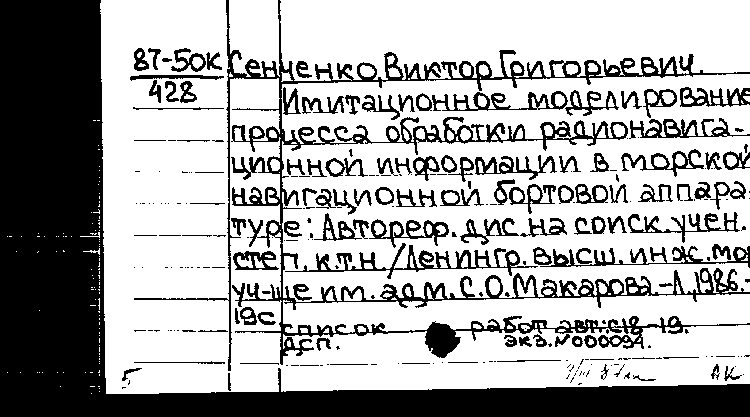 87-50к Сенченко, Виктор Григорьевич.
428
Имитационное моделирование
процесса обработки радионавига-
ционной информации в морской
навигационной бортовой аппара-
туре: Автореф. дис. на соиск. учен.
степ. к.т.н./Ленингр. высш. инж. мор
уч-ще им. адм. С.О. Макарова.-Л, 1986.-
19с
список работ авт: с18-19.
Дсп. экз. №000094.
5 АК